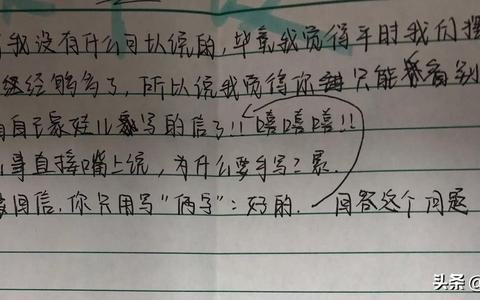 我没有什么可以说的，毕竟我觉得平时我们
经够多了，所以说我觉得你只能看到
自己家娃儿写的信了!! 嘻嘻嘻!!
事直接嘴上说，为什么要手写？累.
回信，你只用写"俩字"：好的. 回答这个问题
头条 @